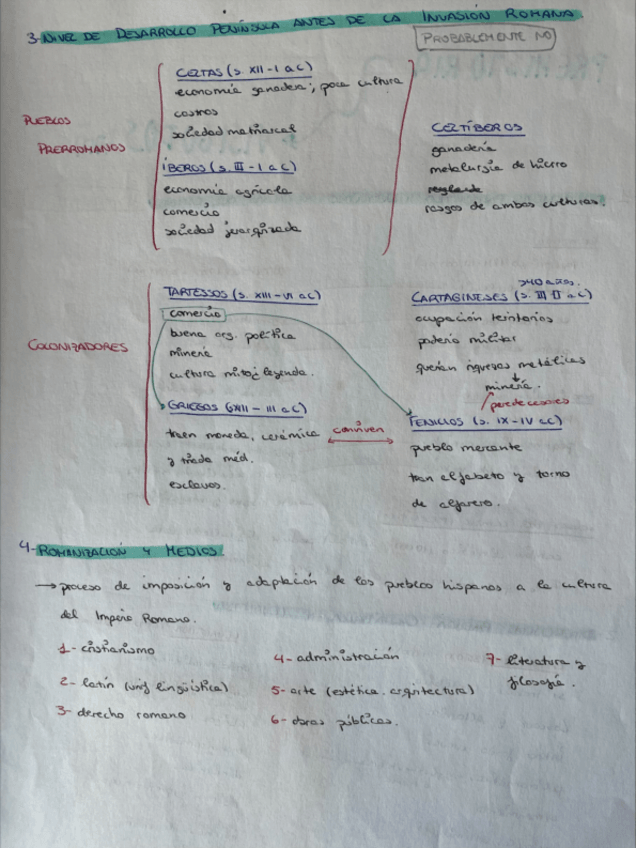 3-NIVEL DE DESARROLLO PENÍNSULA ANTES DE LA INVASIÓN ROMANA.
PROBABLEMENTE NO
PUEBLOS
PRERROMANOS
CELTAS (s. XII-I a.C)
economía ganadera; poca cultura
castros
sociedad matriarcal
ÍBEROS (s. III-I a.C)
economía agrícola
comercio
sociedad jerarquizada
CELTÍBEROS
ganadería
metalurgia de hierro
rasgos de ambas culturas.
COLONIZADORES
TARTESSOS (s. XIII-VI a.C)
comercio
buena org. política
minería
cultura mito¿ leyenda.
GRIEGOS (XIII-III a.C)
traen moneda, cerámica
y triada med.
esclavos.
conviven
>40 años.
CARTAGINESES (s. III II a.C)
ocupación territorios
poderío militar
querían riquezas metálicas
minería.
FENICIOS (s. IX-IV a.C)
pueblo mercante
tran alfabeto y torno
de alfarero.
4-ROMANIZACIÓN Y MEDIOS.
→proceso de imposición y adaptación de los pueblos hispanos a la cultura
del Imperio Romano.
1- cristianismo
2- latín (unif lingüística)
3- derecho romano
4- administración
5- arte (estética. arquitectura)
6- obras públicas.
7- literatura y
filosofía.